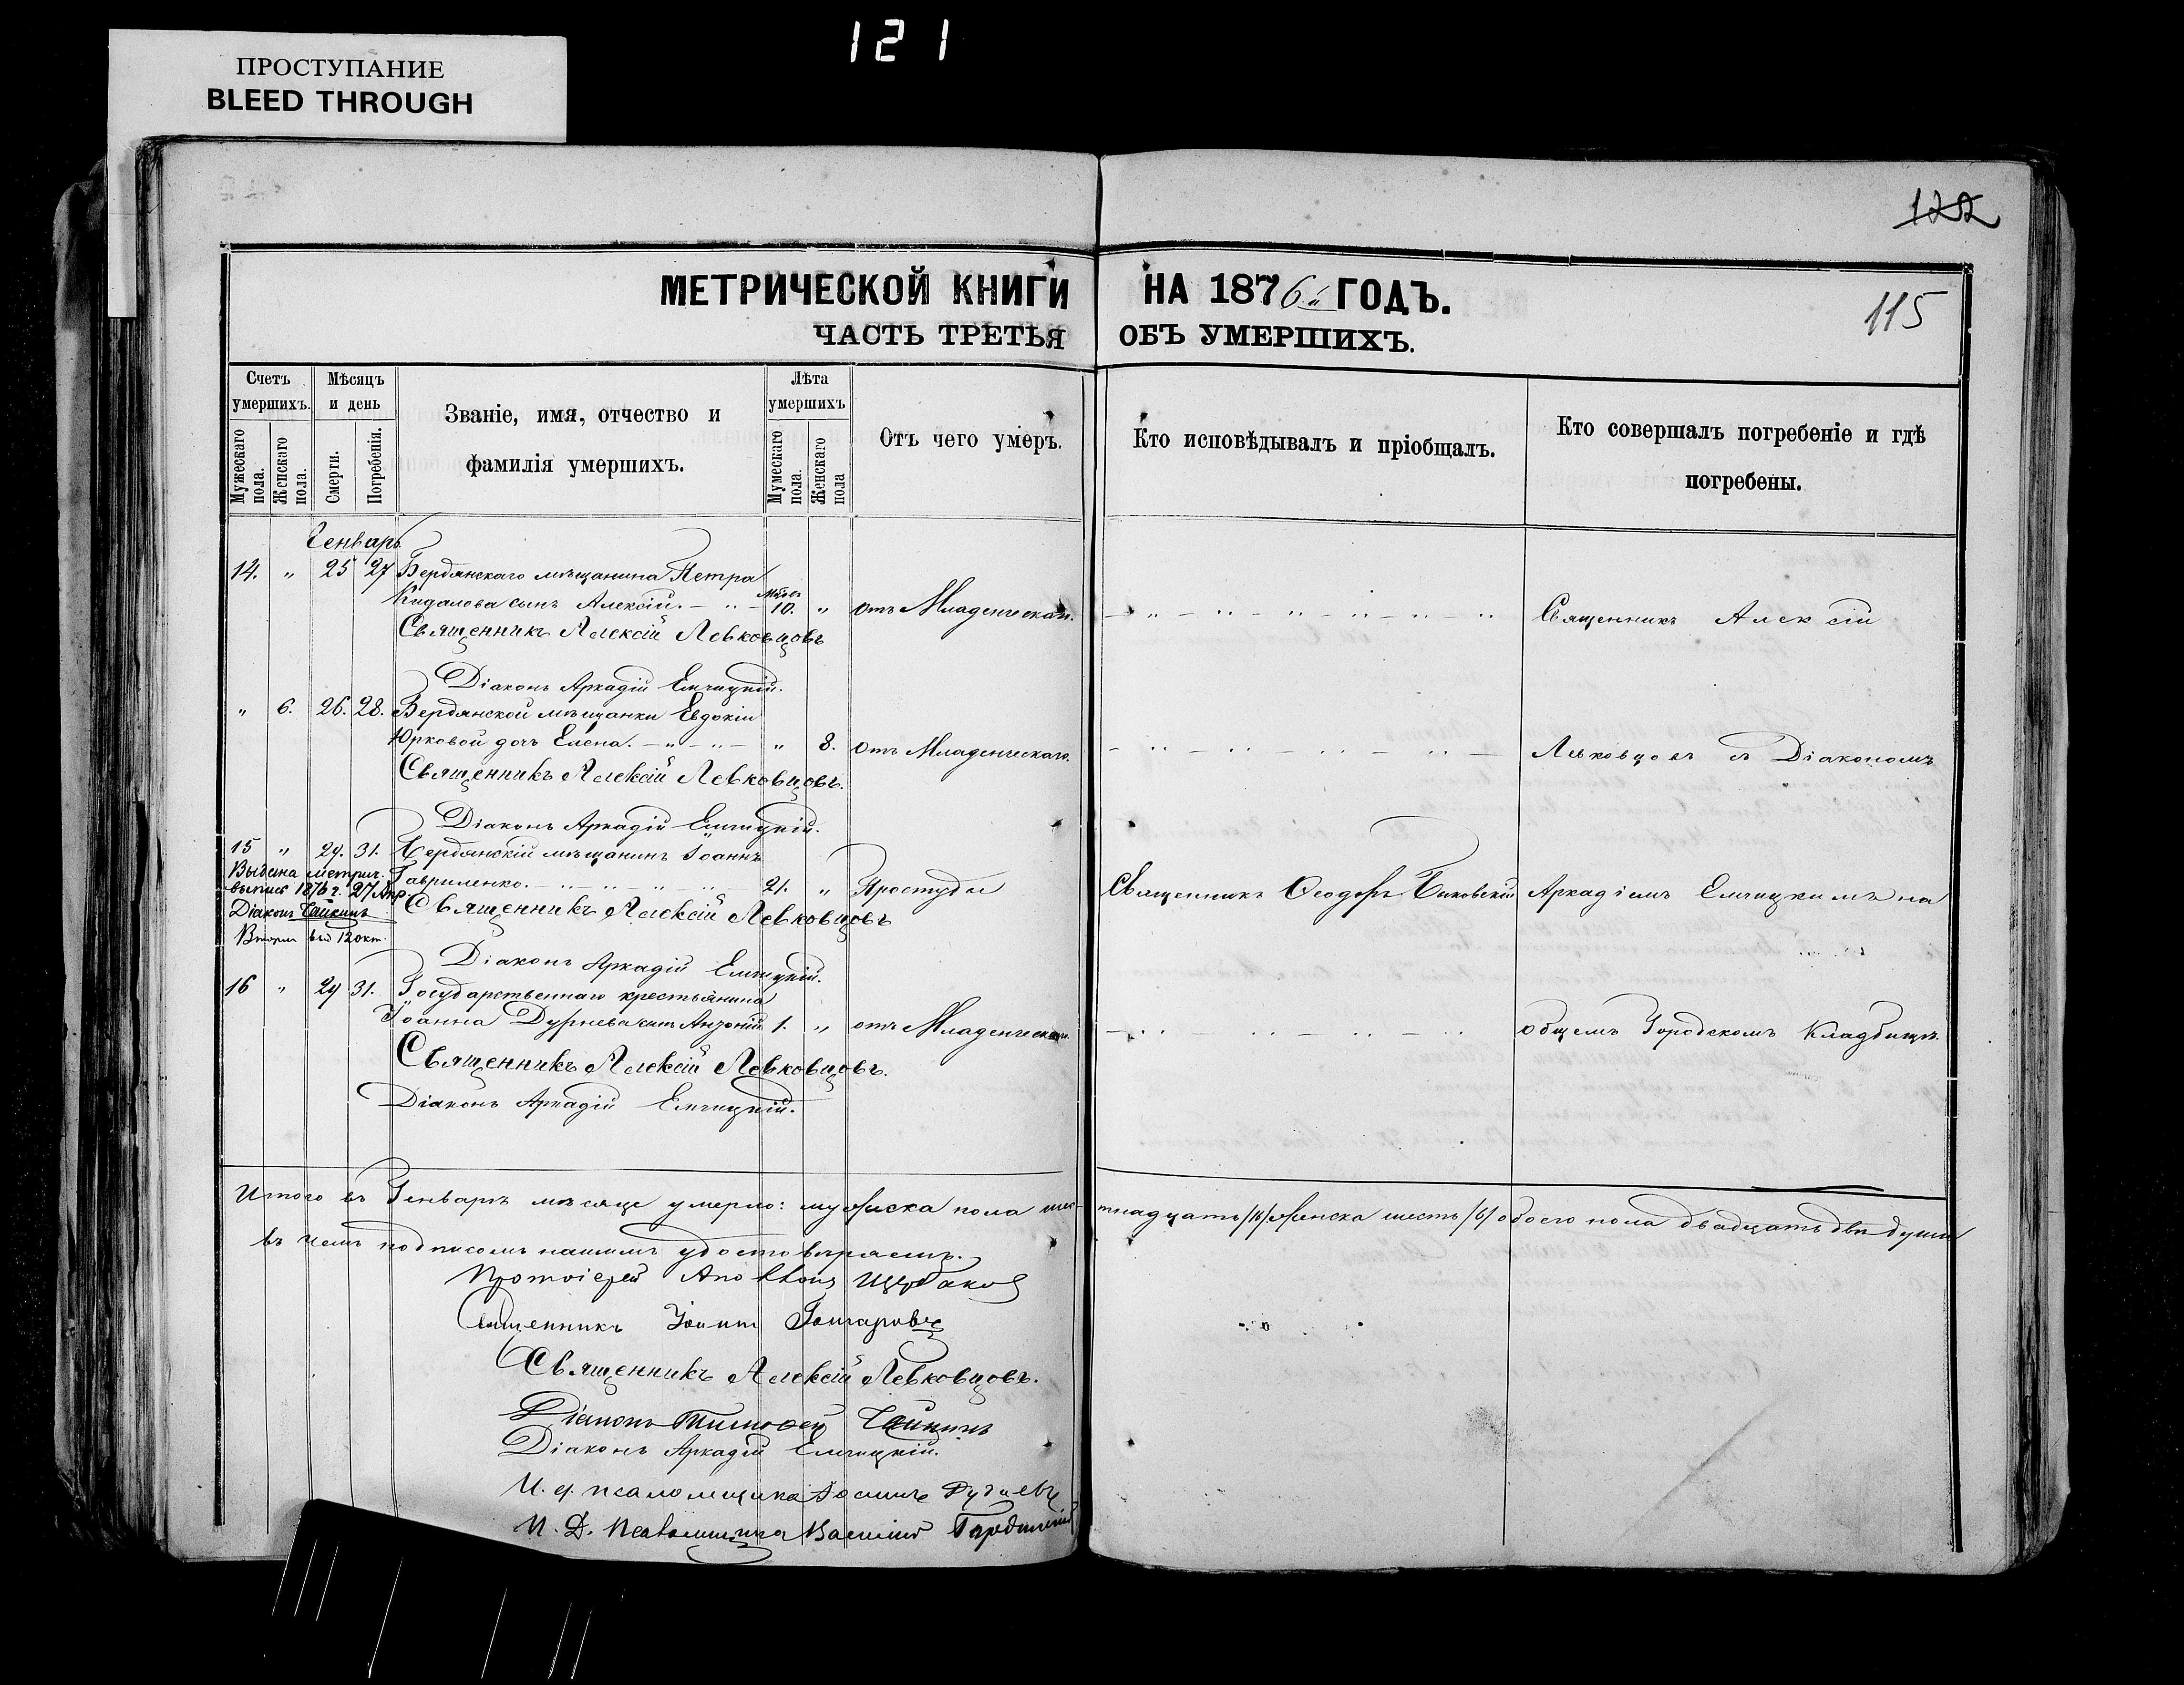 121
ПРОСТУПАНИЕ
BLEED THROUGH
122
115
МЕТРИЧЕСКОЙ КНИГИ НА 1876й ГОДЪ.
ЧАСТЬ ТРЕТЬЯ ОБЪ УМЕРШИХЪ.
Счетъ умершихъ.
Мужескаго пола.
Женскаго пола.
Мѣсяцъ и день
Смерти.
Погребенія.
Званіе, имя, отчество и
фамилія умершихъ.
Лѣта умершихъ
Мужескаго пола.
Женскаго пола
Отъ чего умеръ.
Кто исповѣдывалъ и пріобщалъ.
Кто совершалъ погребеніе и гдѣ
погребены.
Генварь
14. " 25 27 Бердянскаго мѣщанина Петра
Кидалова сынъ Алексій. 10. " отъ Младенческой. Священникъ Алексій
Священникъ Алексій Левковцовъ
Діаконъ Аркадій Емчицкій.
" 6. 26. 28. Бердянской мѣщанки Евдокіи
Юрковой дочь Елена. " 8. отъ Младенческаго. Левковцовъ съ Діакономъ
Священникъ Алексій Левковцовъ.
Діаконъ Аркадій Емчицкій.
15 " 29. 31. Бердянскій мѣщанинъ Іоаннъ
Гавриленко. 21. " Простуды Священникъ Ѳеодоръ Аркадіемъ Емчицкимъ на
Выдана метрич.
выпись 1876 г. 27 Апр.
Діаконъ Чайкинъ
12 окт.
Священникъ Алексій Левковцовъ
Діаконъ Аркадій Емчицкій.
16 " 29 31. Государственнаго крестьянина
Іоанна Дурнева сынъ Антоній 1. " отъ Младенческой. общемъ Городскомъ Кладбищѣ.
Священникъ Алексій Левковцовъ.
Діаконъ Аркадій Емчицкій.
Итого въ Генварѣ мѣсяцѣ умерло: мужеска пола шестнадцать /16/ женска шесть /6/ обоего пола двадцать двѣ души
въ чемъ подписомъ нашимъ удостовѣряемъ.
Протоіерей Щербаковъ
Священникъ Іоаннъ Гончаровъ
Священникъ Алексій Левковцовъ.
Діаконъ Тимофей Чайкинъ
Діаконъ Аркадій Емчицкій.
И. д. псаломщика
И. Д. Псаломщика Василій